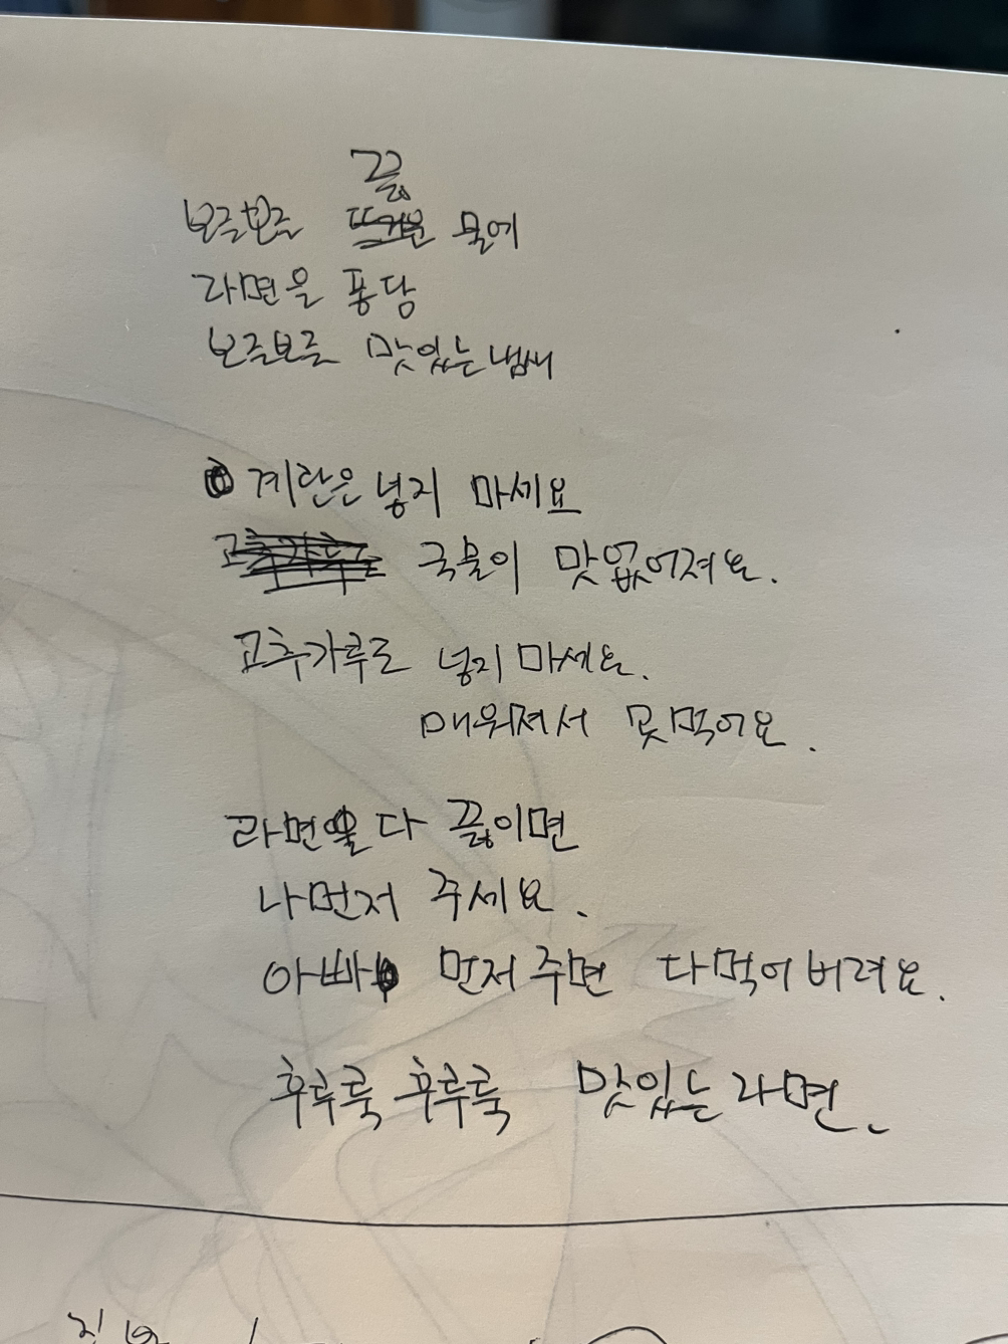 끓
보글보글 뜨거운 물에
라면을 퐁당
보글보글 맛있는 냄새
계란은 넣지 마세요
고추가루 국물이 맛없어져요.
고추가루도 넣지 마세요.
매워져서 못먹어요.
라면을 다 끓이면
나먼저 주세요.
아빠 먼저 주면 다먹어 버려요.
후루룩 후루룩 맛있는 라면.